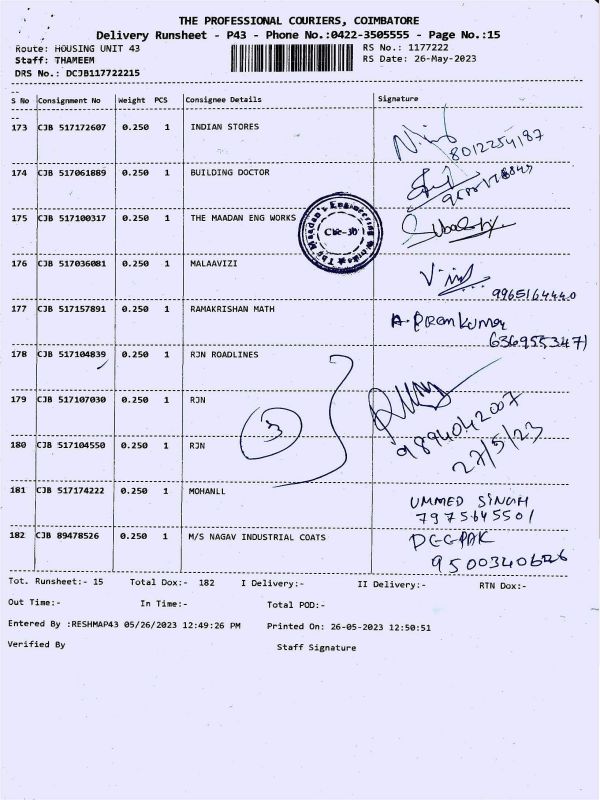 THE PROFESSIONAL COURIERS, COIMBATORE
Delivery Runsheet - P43 - Phone No.:0422-3505555 - Page No.:15
Route: HOUSING UNIT 43 RS No.: 1177222
Staff: THAMEEM RS Date: 26-May-2023
DRS No.: DCJB117722215
S No Consignment No Weight PCS Consignee Details Signature
173 CJB 517172607 0.250 1 INDIAN STORES
8012254187
174 CJB 517061889 0.250 1 BUILDING DOCTOR
175 CJB 517100317 0.250 1 THE MAADAN ENG WORKS
The Maadan's Engineering Works
CBE-30
176 CJB 517036081 0.250 1 MALAAVIZI
9965164440
177 CJB 517157891 0.250 1 RAMAKRISHAN MATH A. Premkumar
6369553471
178 CJB 517104839 0.250 1 RJN ROADLINES
179 CJB 517107030 0.250 1 RJN
3
9894042007
180 CJB 517104550 0.250 1 RJN 27/5/23
181 CJB 517174222 0.250 1 MOHANLL UMMED SINGH
7975645501
182 CJB 89478526 0.250 1 M/S NAGAV INDUSTRIAL COATS DEEPAK
9500340626
Tot. Runsheet:- 15 Total Dox:- 182 I Delivery:- II Delivery:- RTN Dox:-
Out Time:- In Time:- Total POD:-
Entered By :RESHMAP43 05/26/2023 12:49:26 PM Printed On: 26-05-2023 12:50:51
Verified By Staff Signature